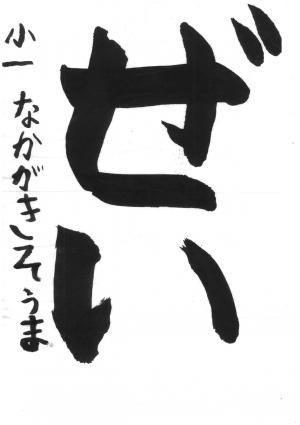 ぜい
小一 なかがきしそうま